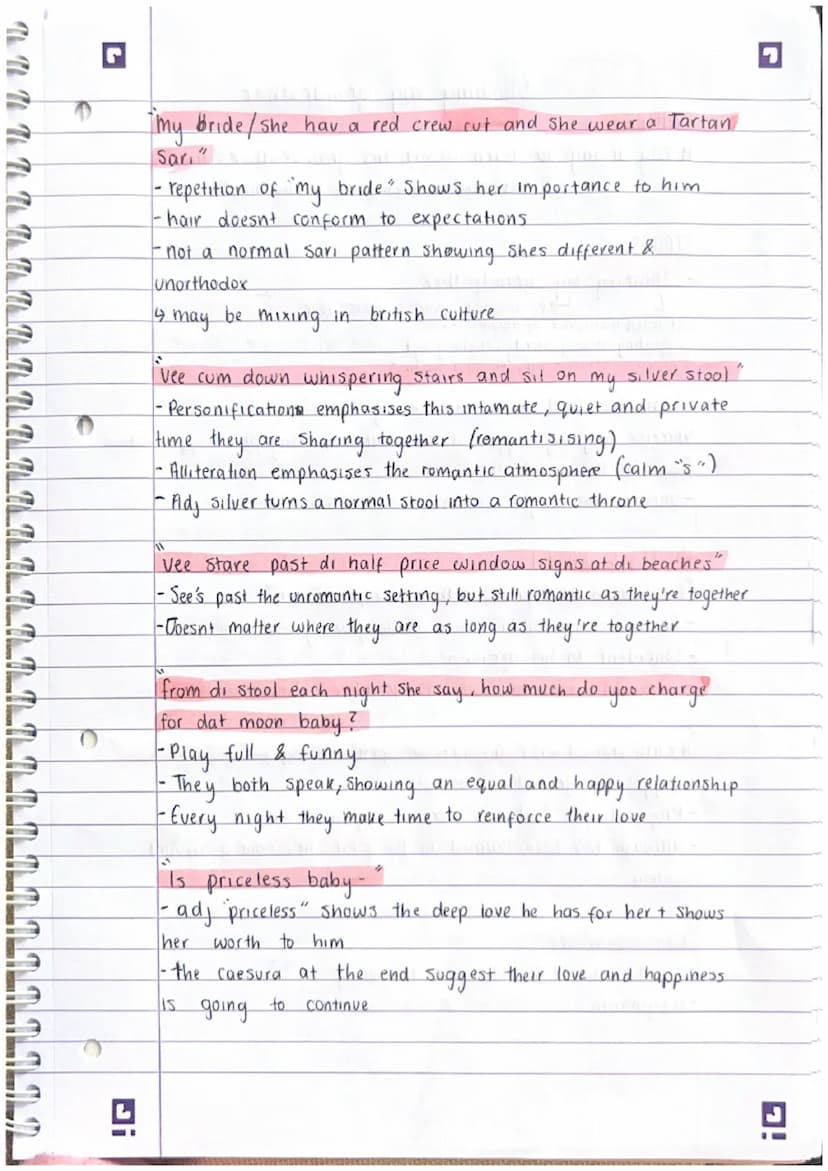 "My bride/she hav a red crew cut and she wear a Tartan
Sari"
- repetition of "my bride" shows her importance to him
- hair doesnt conform to expectations
- not a normal sari pattern showing shes different &
unorthodox
↳ may be mixing in british culture
"Vee cum down whispering stairs and sit on my silver stool"
- Personification emphasises this intamate, quiet and private
time they are sharing together (romantisising)
- Alliteration emphasises the romantic atmosphere (calm "s")
- Adj silver turns a normal stool into a romantic throne
"Vee stare past di half price window signs at di beaches"
- See's past the unromantic setting, but still romantic as they're together
- Doesnt matter where they are as long as they're together
"from di stool each night she say, how much do yoo charge
for dat moon baby?
- Play full & funny
- They both speak, showing an equal and happy relationship
- Every night they make time to reinforce their love
"Is priceless baby-"
- adj "priceless" shows the deep love he has for her + shows
her worth to him
- the caesura at the end suggest their love and happiness
is going to continue